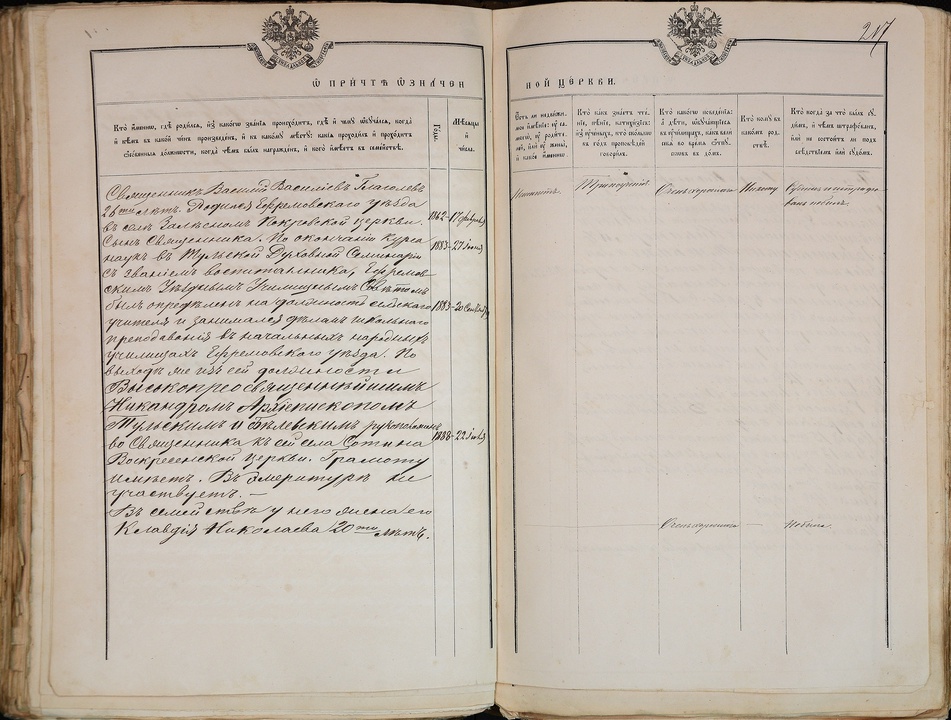 217
Ѡ ПРИ́ЧТѢ Ѡ҆ЗНАЧЕН
НОЙ ЦЕ́РКВИ.
Кто и҆менно, гдѣ̀ роди́лсѧ, и҆з̾ како́гѡ зва́нїѧ происхо́дитъ, гдѣ̀ и҆ чемꙋ̀ ѡ҆бꙋча́лсѧ, когда̀
и҆ кѣ́мъ въ како́й чи́нъ произведе́нъ, и҆ къ како́мꙋ мѣ́стꙋ: какі̑ѧ проходи́лъ и҆ прохо́дитъ
должности, когда̀ чѣ́мъ бы́лъ награжде́нъ, и҆ кого̀ и҆мѣ́етъ въ семе́йствѣ.
Годы.
Мѣсяцы
и
числа.
Есть ли недвижи-
мое имѣніе:
Кто какъ знаетъ чте-
ніе, пѣніе, катихизисъ:
изъ ученыхъ, кто сколько
въ годъ проповѣдей
говорилъ.
Кто какого поведенія:
а дѣти, обучающіяся
въ училищахъ, какъ вели
себя во время отпу-
сковъ въ домъ.
Кто кому въ
какомъ род-
ствѣ.
Кто когда за что былъ су-
димъ, и чѣмъ штрафованъ,
или не состоитъ ли подъ
слѣдствіемъ или судомъ.
Священникъ Василій Василіевъ Глаголевъ
26ти лѣтъ. Родился Ефремовскаго уѣзда
въ селѣ Залѣсномъ Покровской церкви. 1862-17 февраля
Сынъ Священника. По окончаніи Курса
наукъ въ Тульской Духовной Семинаріи 1883-27 іюня
съ званіемъ воспитанника, Ефремов-
скимъ Уѣзднымъ Училищнымъ Совѣтомъ
былъ опредѣленъ на должность сельскаго 1883-20 Сентября
учителя и занимался дѣломъ школьнаго
преподаванія въ начальныхъ народныхъ
училищахъ Ефремовскаго уѣзда. По
выходѣ же изъ сей должности
Высокопреосвященнѣйшимъ
Никандромъ Архіепископомъ
Тульскимъ и Бѣлевскимъ рукоположенъ
во Священника къ сей села Сотина 1888-22
Воскресенской Церкви. Грамоту
имѣетъ. Въ эмеритурѣ не
участвуетъ. —
Въ семействѣ у него жена его
Клавдія Николаева 20ти лѣтъ.
Неимѣетъ. Три поученія. Очень хорошаго Никому Судимъ и штрафо-
ванъ небылъ.